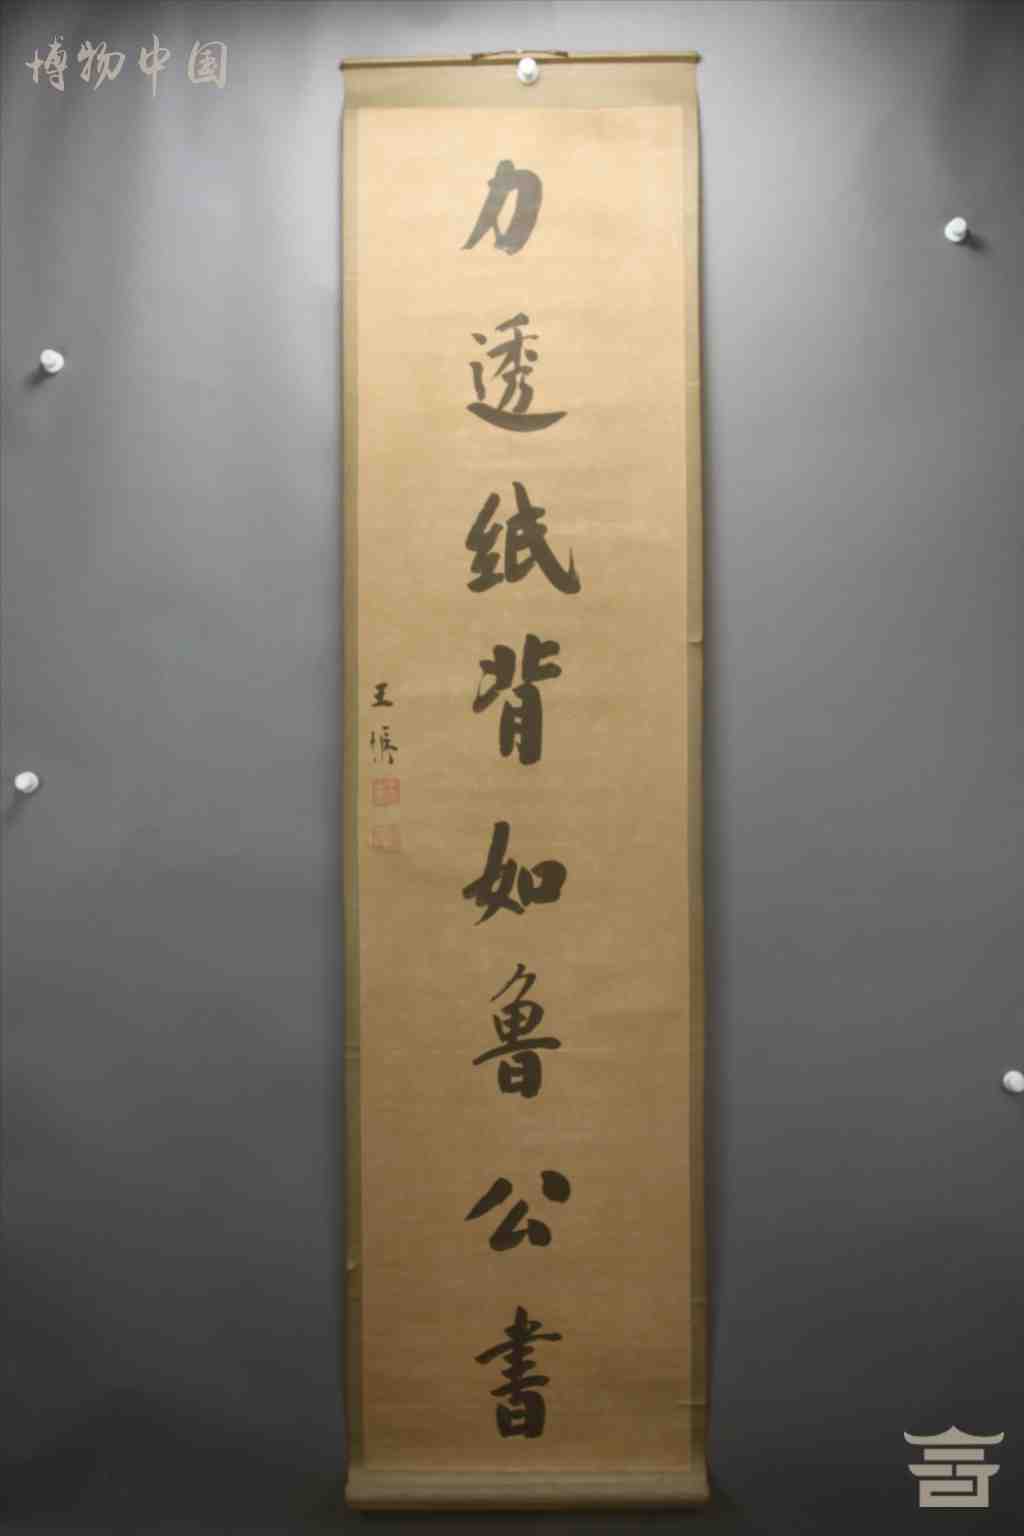 博物中国
力透纸背如鲁公書
王